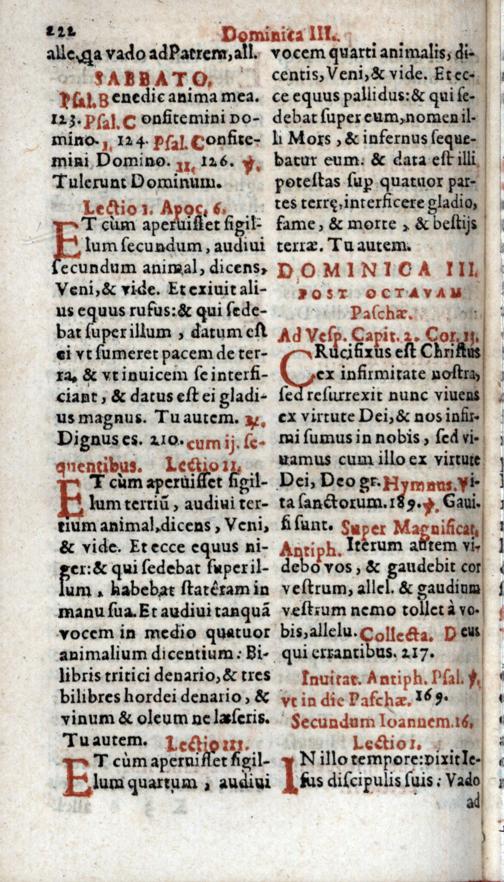 222 Dominica III.
alle.qa vado ad Patrem, all.
SABBATO.
Psal. Benedic anima mea.
123. Psal. Confitemini Do-
mino. j. 124. Psal. Confite-
mini Domino. ij. 126. ℣.
Tulerunt Dominum.
Lectio I. Apoc. 6.
ET cùm aperuisset sigil-
lum secundum, audiui
secundum animal, dicens,
Veni, & vide. Et exiuit ali-
us equus rufus: & qui sede-
bat super illum, datum est
ei vt sumeret pacem de ter-
ra, & vt inuicem se interfi-
ciant, & datus est ei gladi-
us magnus. Tu autem. ℟.
Dignus es. 210. cum ij. se-
quentibus. Lectio II.
ET cùm aperuisset sigil-
lum tertiū, audiui ter-
tium animal, dicens, Veni,
& vide. Et ecce equus ni-
ger: & qui sedebat super il-
lum, habebat statêram in
manu sua. Et audiui tanquā
vocem in medio quatuor
animalium dicentium: Bi-
libris tritici denario, & tres
bilibres hordei denario, &
vinum & oleum ne læseris.
Tu autem. Lectio III.
ET cùm aperuisset sigil-
lum quartum, audiui
vocem quarti animalis, di-
centis, Veni, & vide. Et ec-
ce equus pallidus: & qui se-
debat super eum, nomen il-
li Mors, & infernus seque-
batur eum. & data est illi
potestas sup quatuor par-
tes terrę, interficere gladio,
fame, & morte, & bestijs
terræ. Tu autem.
DOMINICA III.
POST OCTAVAM
Paschæ.
Ad Vesp. Capit. 2. Cor. 13.
CRucifixus est Christus
ex infirmitate nostra,
sed resurrexit nunc viuens
ex virtute Dei, & nos infir-
mi sumus in nobis, sed vi-
uamus cum illo ex virtute
Dei, Deo gr. Hymnus. Vi-
ta sanctorum. 189. ℣. Gaui-
si sunt. Super Magnificat,
Antiph. Iterum autem vi-
debo vos, & gaudebit cor
vestrum, allel. & gaudium
vestrum nemo tollet à vo-
bis, allelu. Collecta. Deus
qui errantibus. 217.
Inuitat. Antiph. Psal. ℣.
vt in die Paschæ. 169.
Secundum Ioannem. 16.
Lectio I.
IN illo tempore: Dixit Ie-
sus discipulis suis: Vado
ad